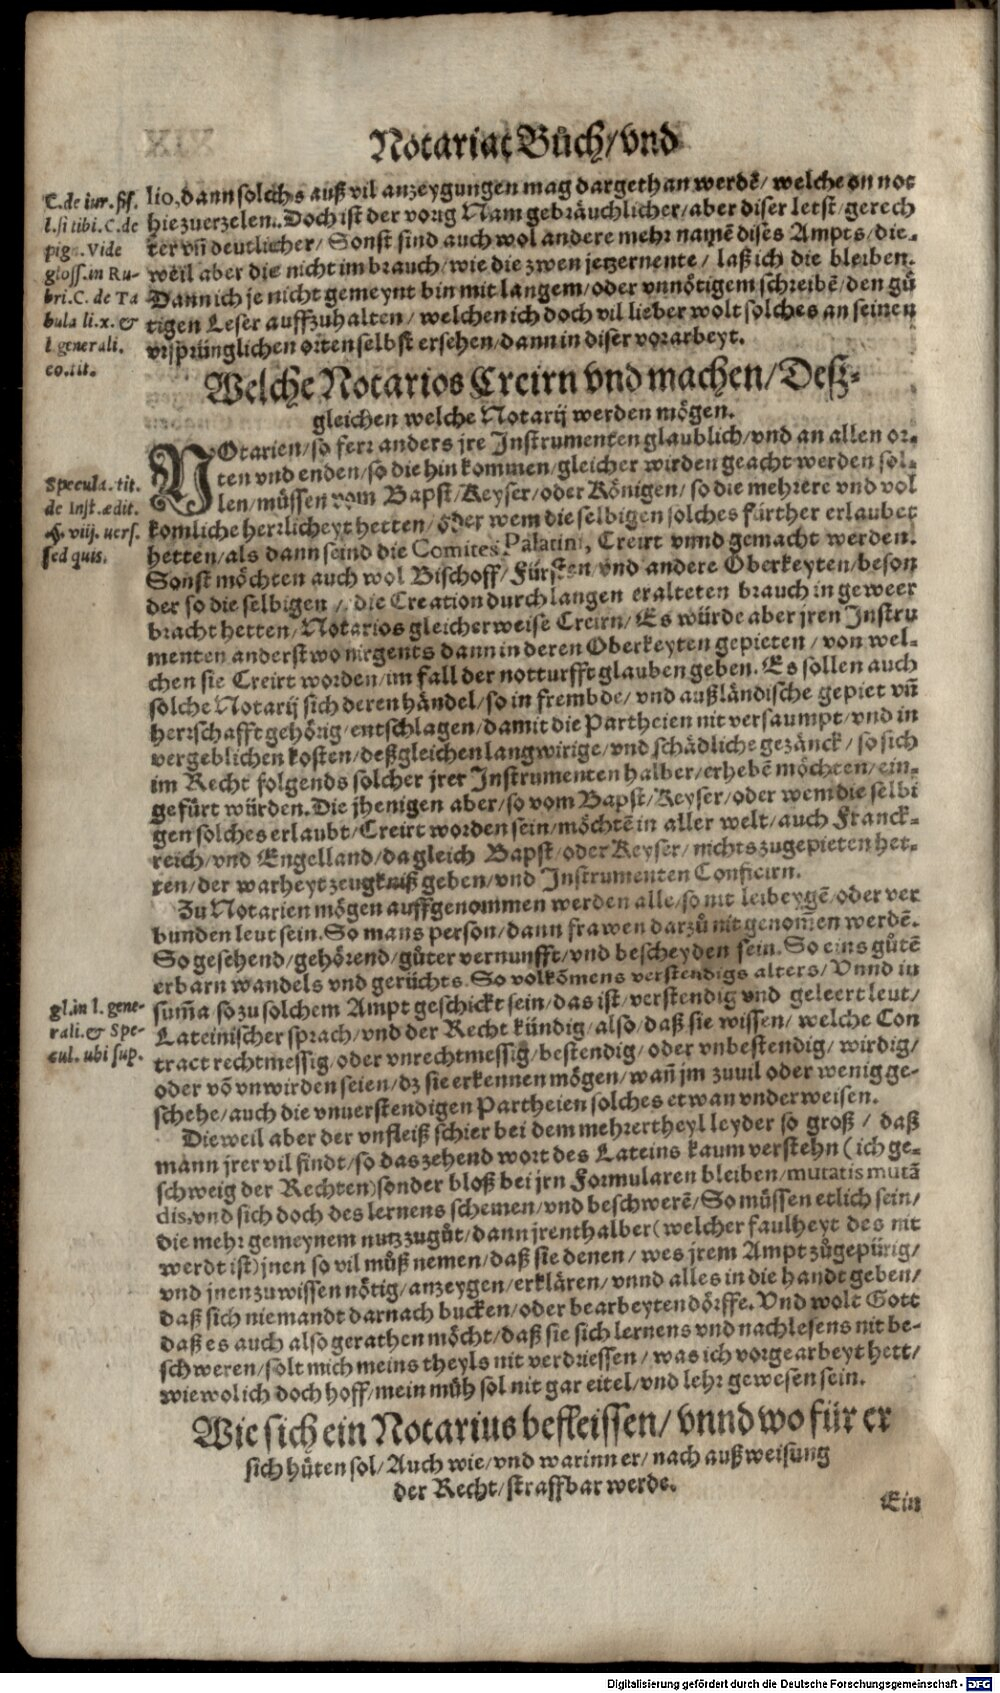 Notariat Bůch/vnd
C. de iur. fis.
l. si tibi. C. de
pig. Vide
gloss. in Ru-
bri. C. de Ta
bula li. x. &
l. generali.
eo. tit.
lio, dann solchs auß vil anzeygungen mag dargethan werdē/ welche on not
hie zuerzelen. Doch ist der vorig Nam gebräuchlicher/ aber diser letst/ gerech
ter vñ deutlicher/ Sonst sind auch wol andere mehr namē dises Ampts/ die-
weil aber die nicht im brauch/ wie die zwen jetzernente/ laß ich die bleiben.
Dann ich je nicht gemeynt bin mit langem/ oder vnnötigem schreibē/ den gů
tigen Leser auffzuhalten/ welchen ich doch vil lieber wolt solches an seinen
vrsprünglichen orten selbst ersehen/ dann in diser vorarbeyt.
Welche Notarios Creirn vnd machen/ Deß-
gleichen welche Notarij werden mögen.
Specula. tit.
de Inst. ædit.
§. viij. uers.
sed quis.
NOtarien/ so ferr anders jre Instrumenten glaublich/ vnd an allen or-
ten vnd enden/ so die hin kommen/ gleicher wirden geacht werden sol-
len/ müssen vom Bapst/ Keyser/ oder Königen/ so die mehrere vnd vol
komliche herrlicheyt hetten/ oder wem die selbigen solches fürther erlaubet
hetten/ als dann seind die Comites Palatini, Creirt vnnd gemacht werden.
Sonst möchten auch wol Bischoff/ Fürsten/ vnd andere Oberkeyten/ beson
der so die selbigen/ die Creation durch langen eralteten brauch in geweer
bracht hetten/ Notarios gleicherweise Creirn/ Es würde aber jren Instru
menten anderstwo nirgents dann in deren Oberkeyten gepieten/ von wel-
chen sie Creirt worden/ im fall der notturfft glauben geben. Es sollen auch
solche Notarij sich deren händel/ so in frembde/ vnd außländische gepiet vñ
herrschafft gehörig/ entschlagen/ damit die Partheien nit versaumpt/ vnd in
vergeblichen kosten/ deßgleichen langwirige/ vnd schädliche gezänck/ so sich
im Recht folgends solcher jrer Instrumenten halber/ erhebē möchten/ ein-
gefürt würden. Die jhenigen aber/ so vom Bapst/ Keyser/ oder wem die selbi
gen solches erlaubt/ Creirt worden sein/ möchtē in aller welt/ auch Franck-
reich/ vnd Engelland/ da gleich Bapst/ oder Keyser/ nichts zugepieten het-
ten/ der warheyt zeugkniß geben/ vnd Instrumenten Conficirn.
Zu Notarien mögen auffgenommen werden alle/ so nit leibeygē/ oder ver
bunden leut sein. So mans person/ dann frawen darzů nit genom̃en werdē.
So gesehend/ gehörend/ gůter vernunfft/ vnd bescheyden sein. So eins gůtē
erbarn wandels vnd gerüchts. So volkōmens verstendigs alters/ Vnnd in
gl. in l. gene-
rali. & Spe-
cul. ubi sup.
sum̃a so zu solchem Ampt geschickt sein/ das ist/ verstendig vnd geleert leut/
Lateinischer sprach/ vnd der Recht kündig/ also/ daß sie wissen/ welche Con
tract rechtmessig/ oder vnrechtmessig/ bestendig/ oder vnbestendig/ wirdig/
oder vō vnwirden seien/ dz sie erkennen mögen/ wañ jm zuuil oder wenig ge-
schehe/ auch die vnuerstendigen Partheien solches etwan vnderweisen.
Dieweil aber der vnfleiß schier bei dem mehrertheyl leyder so groß/ daß
mann jrer vil findt/ so das zehend wort des Lateins kaum verstehn (ich ge-
schweig der Rechten) sonder bloß bei jrn Formularen bleiben/ mutatis mutā
dis, vnd sich doch des lernens schemen/ vnd beschwerē/ So müssen etlich sein/
die mehr gemeynem nutz zugůt/ dann jrenthalber (welcher faulheyt des nit
werdt ist) jnen so vil můß nemen/ daß sie denen/ wes jrem Ampt zůgepürig/
vnd jnen zuwissen nötig/ anzeygen/ erklären/ vnnd alles in die handt geben/
daß sich niemandt darnach bucken/ oder bearbeyten dörffe. Vnd wolt Gott
daß es auch also gerathen möcht/ daß sie sich lernens vnd nachlesens nit be-
schweren/ solt mich meins theyls nit verdriessen/ was ich vorgearbeyt hett/
wiewol ich doch hoff/ mein müh sol nit gar eitel/ vnd lehr gewesen sein.
Wie sich ein Notarius befleissen/ vnnd wo für er
sich hüten sol/ Auch wie/ vnd warinn er/ nach außweisung
der Recht/ straffbar werde.
Ein
Digitalisierung gefördert durch die Deutsche Forschungsgemeinschaft - DFG